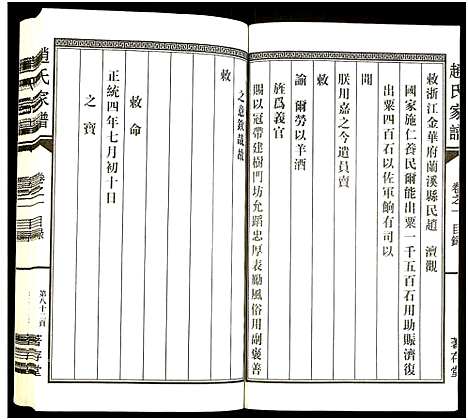 趙氏家譜
卷之一
目錄
敕浙江金華府蘭溪縣民趙　澶觀
國家施仁養民爾能出粟一千五百石用助賑濟復
出粟四百石以佐軍餉有司以
聞
朕用嘉之今遣員賣
敕
諭　爾勞以羊酒
旌爲義官
賜以冠帶建樹門坊允蹈忠厚表勵風俗用副褒善
之意欽哉故
敕命
正統四年七月初十日
之寶
趙氏家譜
卷之一
目錄
著存堂
著存堂